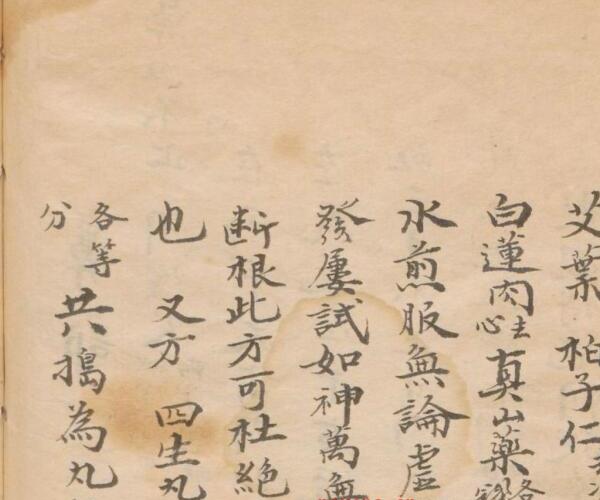 艾葉柏子仁
白蓮肉去心真山藥
水煎服無論虛
發屢試如神萬無
断根此方可杜絕
也又方四生丸
各等分共搗為丸